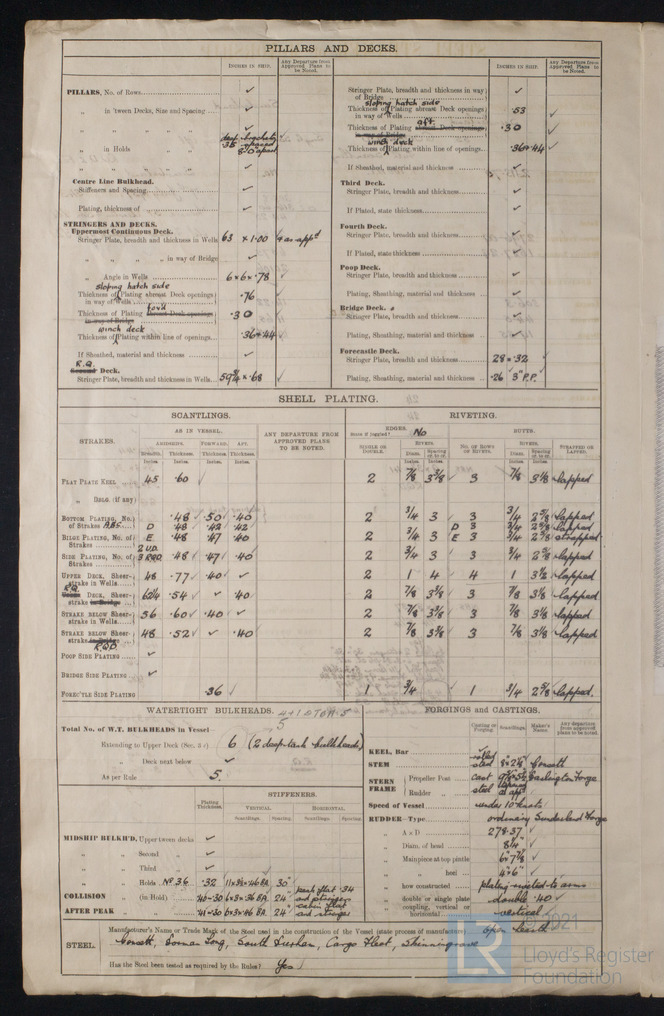 PILLARS AND DECKS.
INCHES IN SHIP.
Any Departure from Approved Plans to be Noted.
PILLARS, No. of Rows
„ in 'tween Decks, Size and Spacing
„ „ „
„ in Holds deep brackets
Centre Line Bulkhead.
Stiffeners and Spacing
Plating, thickness of
STRINGERS AND DECKS.
Uppermost Continuous Deck.
Stringer Plate, breadth and thickness in Wells 63 x 1.00 as app'd
„ „ „ in way of Bridge
„ Angle in Wells 6 x 6 x .78
sloping hatch side
Thickness of Plating abreast Deck openings in way of Wells .76
Thickness of Plating abreast Deck openings in way of Bridge for'd .30
winch deck
Thickness of Plating within line of openings .36 & .44
If Sheathed, material and thickness
R.Q.
Second Deck.
Stringer Plate, breadth and thickness in Wells 59¾ x .68
INCHES IN SHIP.
Any Departure from Approved Plans to be Noted.
Stringer Plate, breadth and thickness in way of Bridge
sloping hatch side
Thickness of Plating abreast Deck openings in way of Wells .53
aft
Thickness of Plating abreast Deck openings in way of Bridge .30
winch deck
Thickness of Plating within line of openings .36 & .44
If Sheathed, material and thickness
Third Deck.
Stringer Plate, breadth and thickness
If Plated, state thickness
Fourth Deck.
Stringer Plate, breadth and thickness
If Plated, state thickness
Poop Deck.
Stringer Plate, breadth and thickness
Plating, Sheathing, material and thickness
Bridge Deck.
Stringer Plate, breadth and thickness
Plating, Sheathing, material and thickness
Forecastle Deck.
Stringer Plate, breadth and thickness 28 x .32
Plating, Sheathing, material and thickness .26 3" P.P.
SHELL PLATING.
SCANTLINGS.
RIVETING.
STRAKES.
AS IN VESSEL.
AMIDSHIPS. FORWARD. AFT.
Breadth. Thickness. Thickness. Thickness.
Inches Inches Inches Inches
ANY DEPARTURE FROM APPROVED PLANS TO BE NOTED.
EDGES. No
State if joggled?
SINGLE OR DOUBLE.
RIVETS.
Diam. Spacing cr. to cr.
BUTTS.
No. of Rows of Rivets.
RIVETS.
Diam. Spacing cr. to cr.
STRAPPED OR LAPPED.
FLAT PLATE KEEL 45 .60 2 7/8 3 3/8 3 7/8 3 1/8 Lapped
„ Dblg. (if any)
BOTTOM PLATING, No. of Strakes A.B.C. .48 .50 .40 2 3/4 3 3 3/4 2 5/8 Lapped
D .48 .42 .42 D 3 3/4 2 5/8 Lapped
BILGE PLATING, No. of Strakes E .48 .47 .40 2 3/4 3 E 3 3/4 2 5/8 strapped
2 U.D.
SIDE PLATING, No. of Strakes 3 R.Q.D. .48 .47 .40 2 3/4 3 3 3/4 2 5/8 Lapped
UPPER DECK, Sheerstrake in Wells 48 .77 .40 2 1 4 4 1 3 1/2 Lapped
R.Q. DECK, Sheerstrake in Bridge 62 1/4 .54 .40 2 7/8 3 3/8 3 7/8 3 1/8 Lapped
STRAKE BELOW Sheerstrake in Wells 56 .60 .40 2 7/8 3 3/8 3 7/8 3 1/8 Lapped
STRAKE BELOW Sheerstrake in Bridge R.Q.D 48 .52 .40 2 7/8 3 3/8 3 7/8 3 1/8 Lapped
POOP SIDE PLATING
BRIDGE SIDE PLATING
FOREC'TLE SIDE PLATING .36 1 3/4 1 3/4 2 5/8 Lapped
WATERTIGHT BULKHEADS.
Total No. of W.T. BULKHEADS in Vessel 5
Extending to Upper Deck (Sec. 3 c) 6 (2 deep tank bulkheads)
„ Deck next below
As per Rule 5.
Plating Thickness.
STIFFENERS.
VERTICAL. HORIZONTAL.
Scantlings. Spacing. Scantlings. Spacing.
MIDSHIP BULKH'D, Upper tween decks
„ „ Second „
„ „ Third „
„ „ Holds No 36 .32 30"
COLLISION „ (in Hold) .40-.30 6x3x.36 BA 24" peak flat .34 and stringers
AFTER PEAK „ „ .41-.30 6x3x.46 BA 24" cabin flat and stringer
FORGINGS and CASTINGS.
Casting or Forging. Scantlings. Maker's Name. Any departure from approved plans to be noted.
KEEL, Bar
STEM rolled steel 8 x 2¼ Consett
STERN FRAME
Propeller Post cast Darlington Forge
Rudder „ steel as app'd
Speed of Vessel under 10 knots
RUDDER—Type ordinary Sunderland Forge
„ A x D 278.37
„ Diam. of head 8¼"
„ Mainpiece at top pintle 6" 7⅞
„ „ heel 4" 6"
„ how constructed plating riveted to arms
„ double or single plate double .40
„ coupling, vertical or horizontal vertical
STEEL.
Manufacturer's Name or Trade Mark of the Steel used in the construction of the Vessel (state process of manufacture) open hearth
Consett, Dorman Long, South Durham, Cargo Fleet, Skinningrove
Has the Steel been tested as required by the Rules? Yes
© 2021
LR
Lloyd's Register
Foundation